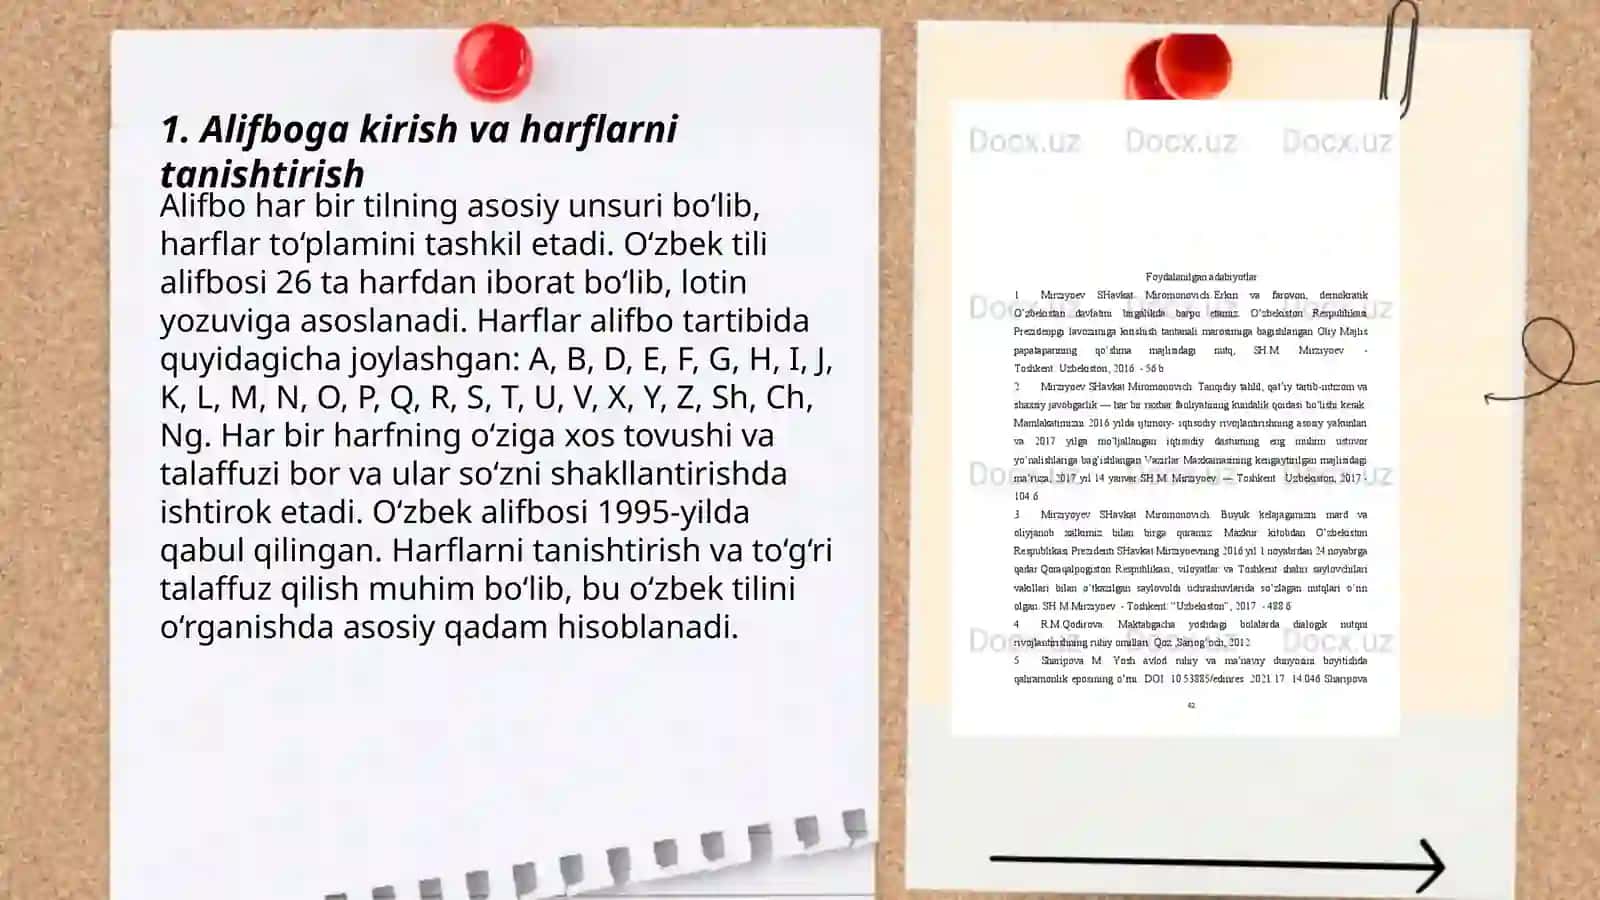 1. Alifboga kirish va harflarni
tanishtirish
Alifbo har bir tilning asosiy unsuri bo‘lib,
harflar to‘plamini tashkil etadi. O‘zbek tili
alifbosi 26 ta harfdan iborat bo‘lib, lotin
yozuviga asoslanadi. Harflar alifbo tartibida
quyidagicha joylashgan: A, B, D, E, F, G, H, I, J,
K, L, M, N, O, P, Q, R, S, T, U, V, X, Y, Z, Sh, Ch,
Ng. Har bir harfning o‘ziga xos tovushi va
talaffuzi bor va ular so‘zni shakllantirishda
ishtirok etadi. O‘zbek alifbosi 1995-yilda
qabul qilingan. Harflarni tanishtirish va to‘g‘ri
talaffuz qilish muhim bo‘lib, bu o‘zbek tilini
o‘rganishda asosiy qadam hisoblanadi.
Docx.uz Docx.uz Docx.uz
Foydalanilgan adabiyotlar
1 Mirziyoev SHavkat Miromonovich. Erkin va farovon, demokratik
O‘zbekistan davlatini birgalikda barpo etamiz. O‘zbekiston Respublikasi
lavozimiga kirishish tantanali marosimiga bagishlangan Oliy Majlis
qo‘shma majlisidagi nutq, SH.M. Mirziyoev -
Toshkent Uzbekiston, 2016. - 56 b
2 Mirziyoev SHavkat Miromonovich. Tanqidiy tahlil, qat’iy tartib-intizom va
shaxsiy javobgarlik — har bir raxbar faoliyatining kundalik qoidasi bo‘lishi kerak.
Mamlakatimizni 2016 yilda ijtimoiy- iqtisodiy rivojlantirishning asosiy yakunlari
va 2017 yilga mo‘ljallangan iqtisodiy dasturning eng muhim ustuvor
yo‘nalishlariga bag‘ishlangan Vazirlar Maxkamasining kengaytirilgan majlisidagi
ma’ruza, 2017 yil 14 yanvar SH.M. Mirziyoev. — Toshkent Uzbekiston, 2017 -
104 6
3 Mirziyoyev SHavkat Miromonovich. Buyuk kelajagimizni mard va
oliyjanob xalkimiz bilan birga quramiz. Mazkur kitobdan O‘zbekiston
Respublikasi Prezidenti SHavkat Mirziyoevning 2016 yil 1 noyabrdan 24 noyabrga
qadar Qoraqalpogiston Respublikasi, viloyatlar va Toshkent shahri saylovchilari
vakillari bilan o‘tkazilgan saylovoldi uchrashuvlarida so‘zlagan nutqlari o‘rin
olgan. SH.M.Mirziyoev. - Toshkent: “Uzbekiston”, 2017. - 488 6
4 R.M.Qodirova. Maktabgacha yoshdagi bolalarda dialogik nutqni
rivojlantirishning ruhiy omillari. 2012
5 Sharipova M. Yosh avlod ruhiy va ma’naviy dunyosini boyitishda
qahramonlik eposining o‘rni. DOI 10.53885/edinres. 2021.17. 14.046 Sharipova
42